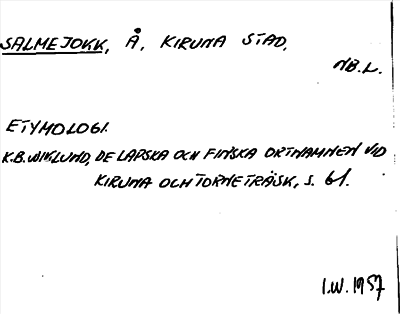 SALMEJOKK, Å, KIRUNA STAD,
NB.L.
ETYMOLOGI.
K.B. WIKLUND, DE LAPSKA OCH FINSKA ORTNAMNEN VID
KIRUNA OCH TORNETRÄSK, S. 61.
I.W. 1957